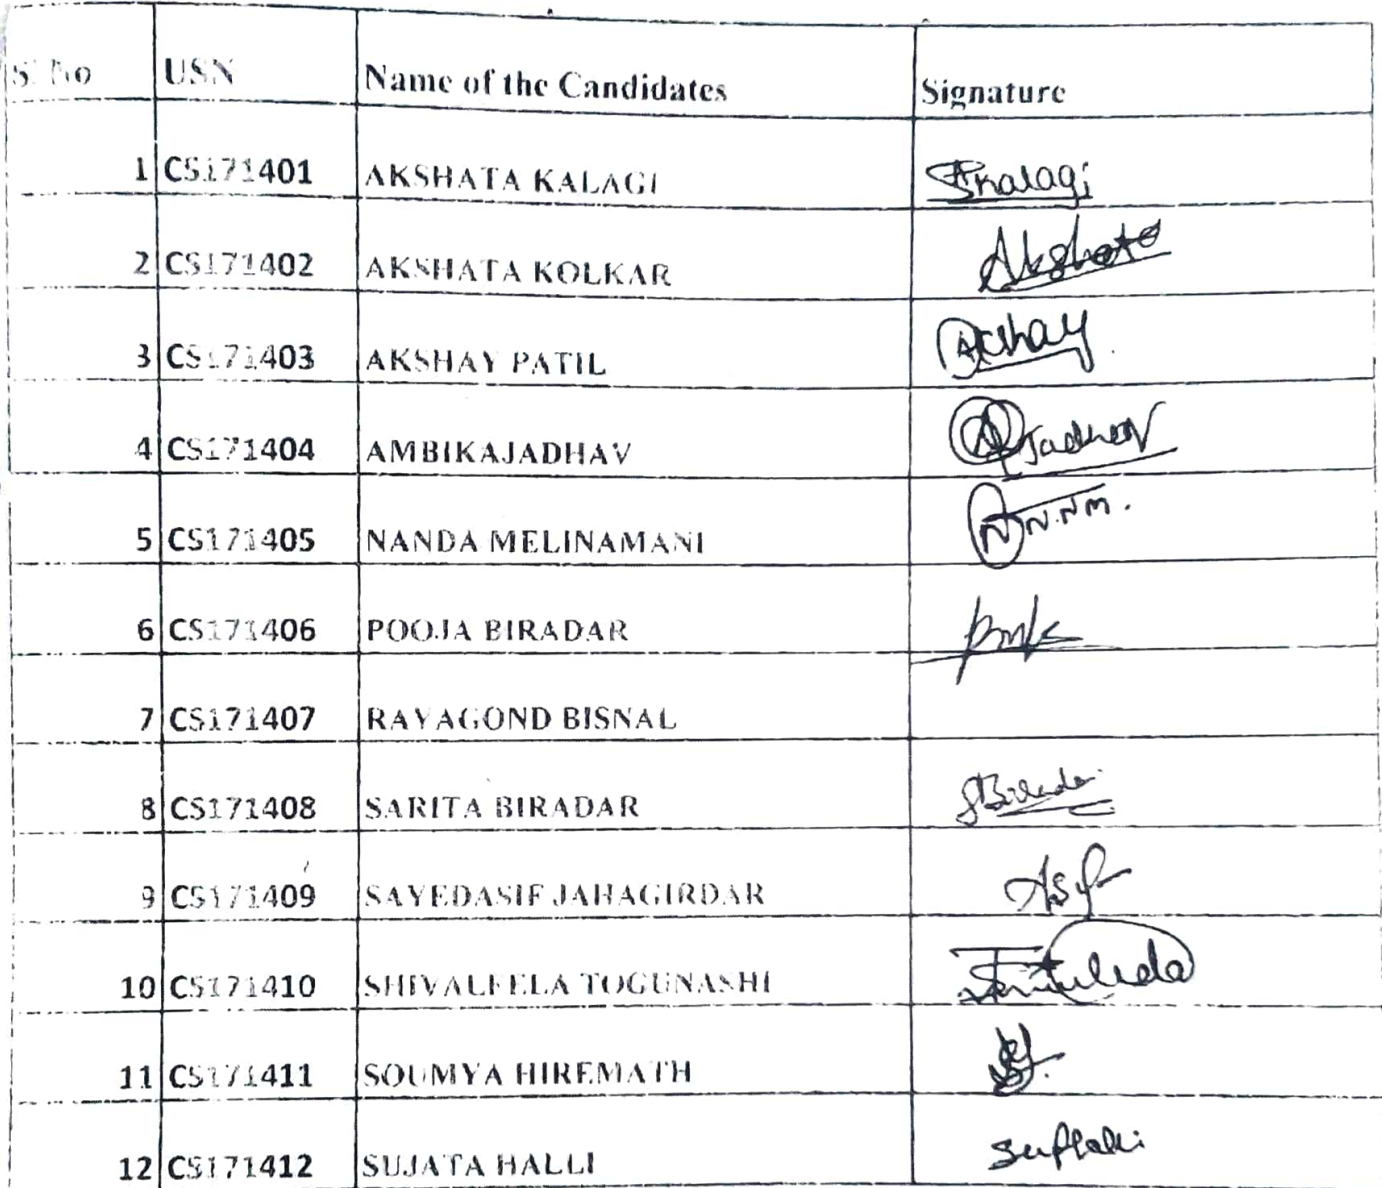 Sl No USN Name of the Candidates Signature
1 CS171401 AKSHATA KALAGI Akalagi
2 CS171402 AKSHATA KOLKAR Akshata
3 CS171403 AKSHAY PATIL Akshay
4 CS171404 AMBIKAJADHAV AJadhav
5 CS171405 NANDA MELINAMANI N.N.M.
6 CS171406 POOJA BIRADAR
7 CS171407 RAYAGOND BISNAL
8 CS171408 SARITA BIRADAR SBiradar
9 CS171409 SAYEDASIF JAHAGIRDAR Asif
10 CS171410 SHIVALEELA TOGUNASHI
11 CS171411 SOUMYA HIREMATH
12 CS171412 SUJATA HALLI